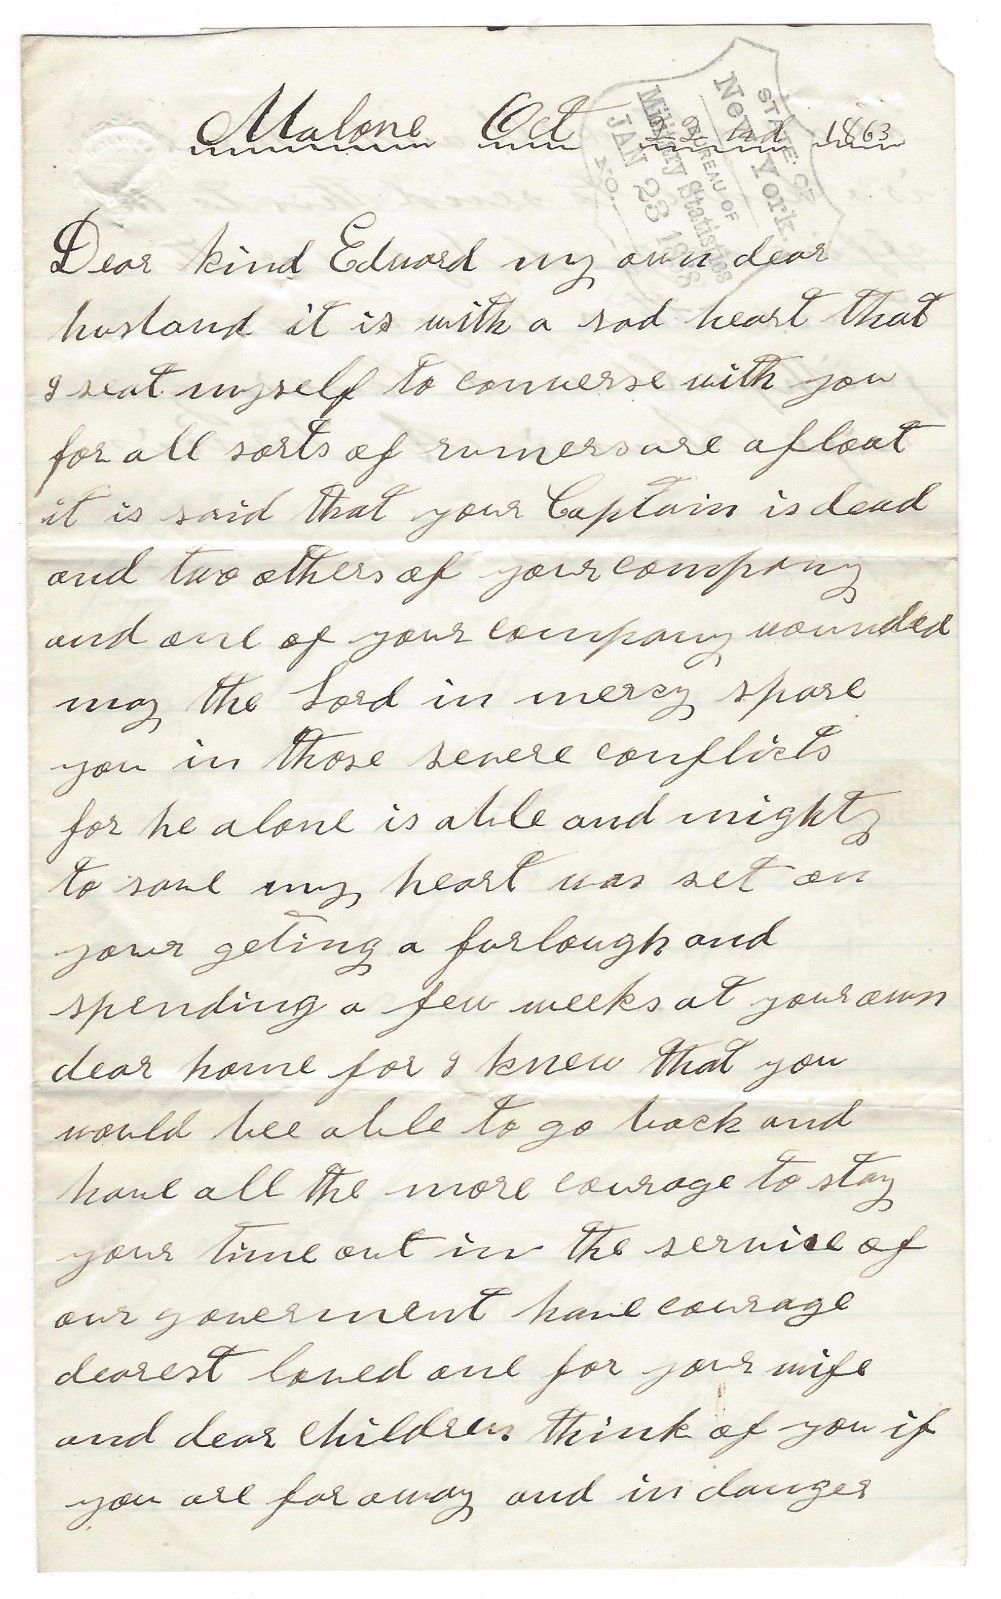 Malone Oct 1863
STATE OF
New York.
BUREAU OF
Military Statistics
JAN 23
NO.
Dear kind Edward my own dear
husband it is with a sad heart that
I seat myself to converse with you
for all sorts of rumers are afloat
it is said that your Captain is dead
and two others of your company
and one of your company wounded
may the Lord in mercy spare
you in those severe conflicts
for he alone is able and mighty
to save my heart was set on
your geting a furlough and
spending a few weeks at your own
dear home for I knew that you
would bee able to go back and
have all the more courage to stay
your time out in the service of
our goverment have courage
dearest loved one for your wife
and dear children think of you if
you are far away and in danger